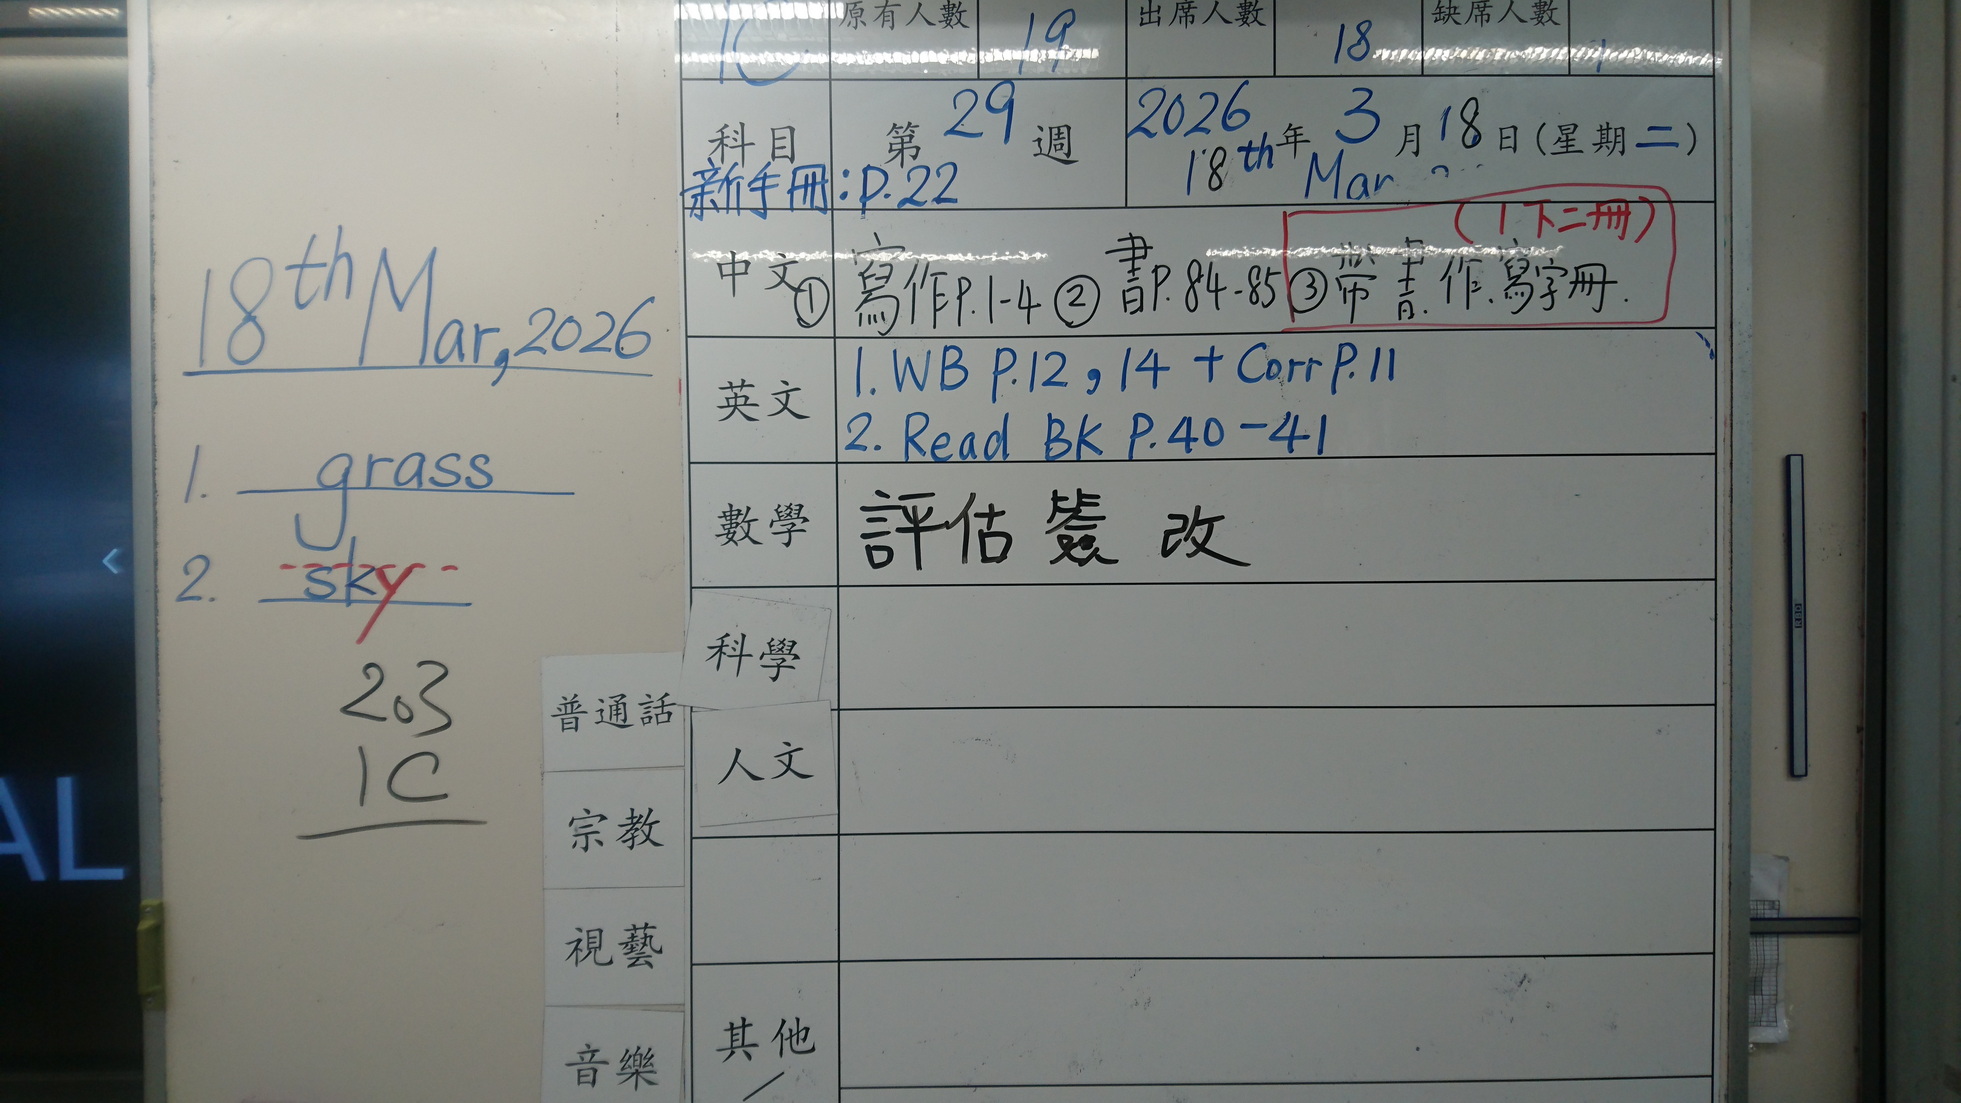 18th Mar, 2026
1. grass
2. sky
203
1C
普通話
宗教
視藝
音樂
1C 原有人數 19 出席人數 18 缺席人數 1
科目 第 29 週 2026 年 3 月 18 日 (星期二)
新手冊:P.22 18th Mar
(1下二冊)
中文 ① 寫作P.1-4 ② 書P.84-85 ③ 帶書.作.寫字冊.
英文 1. WB P.12, 14 + Corr P.11
2. Read BK P.40-41
數學 評估簽改
科學
人文
其他
AL